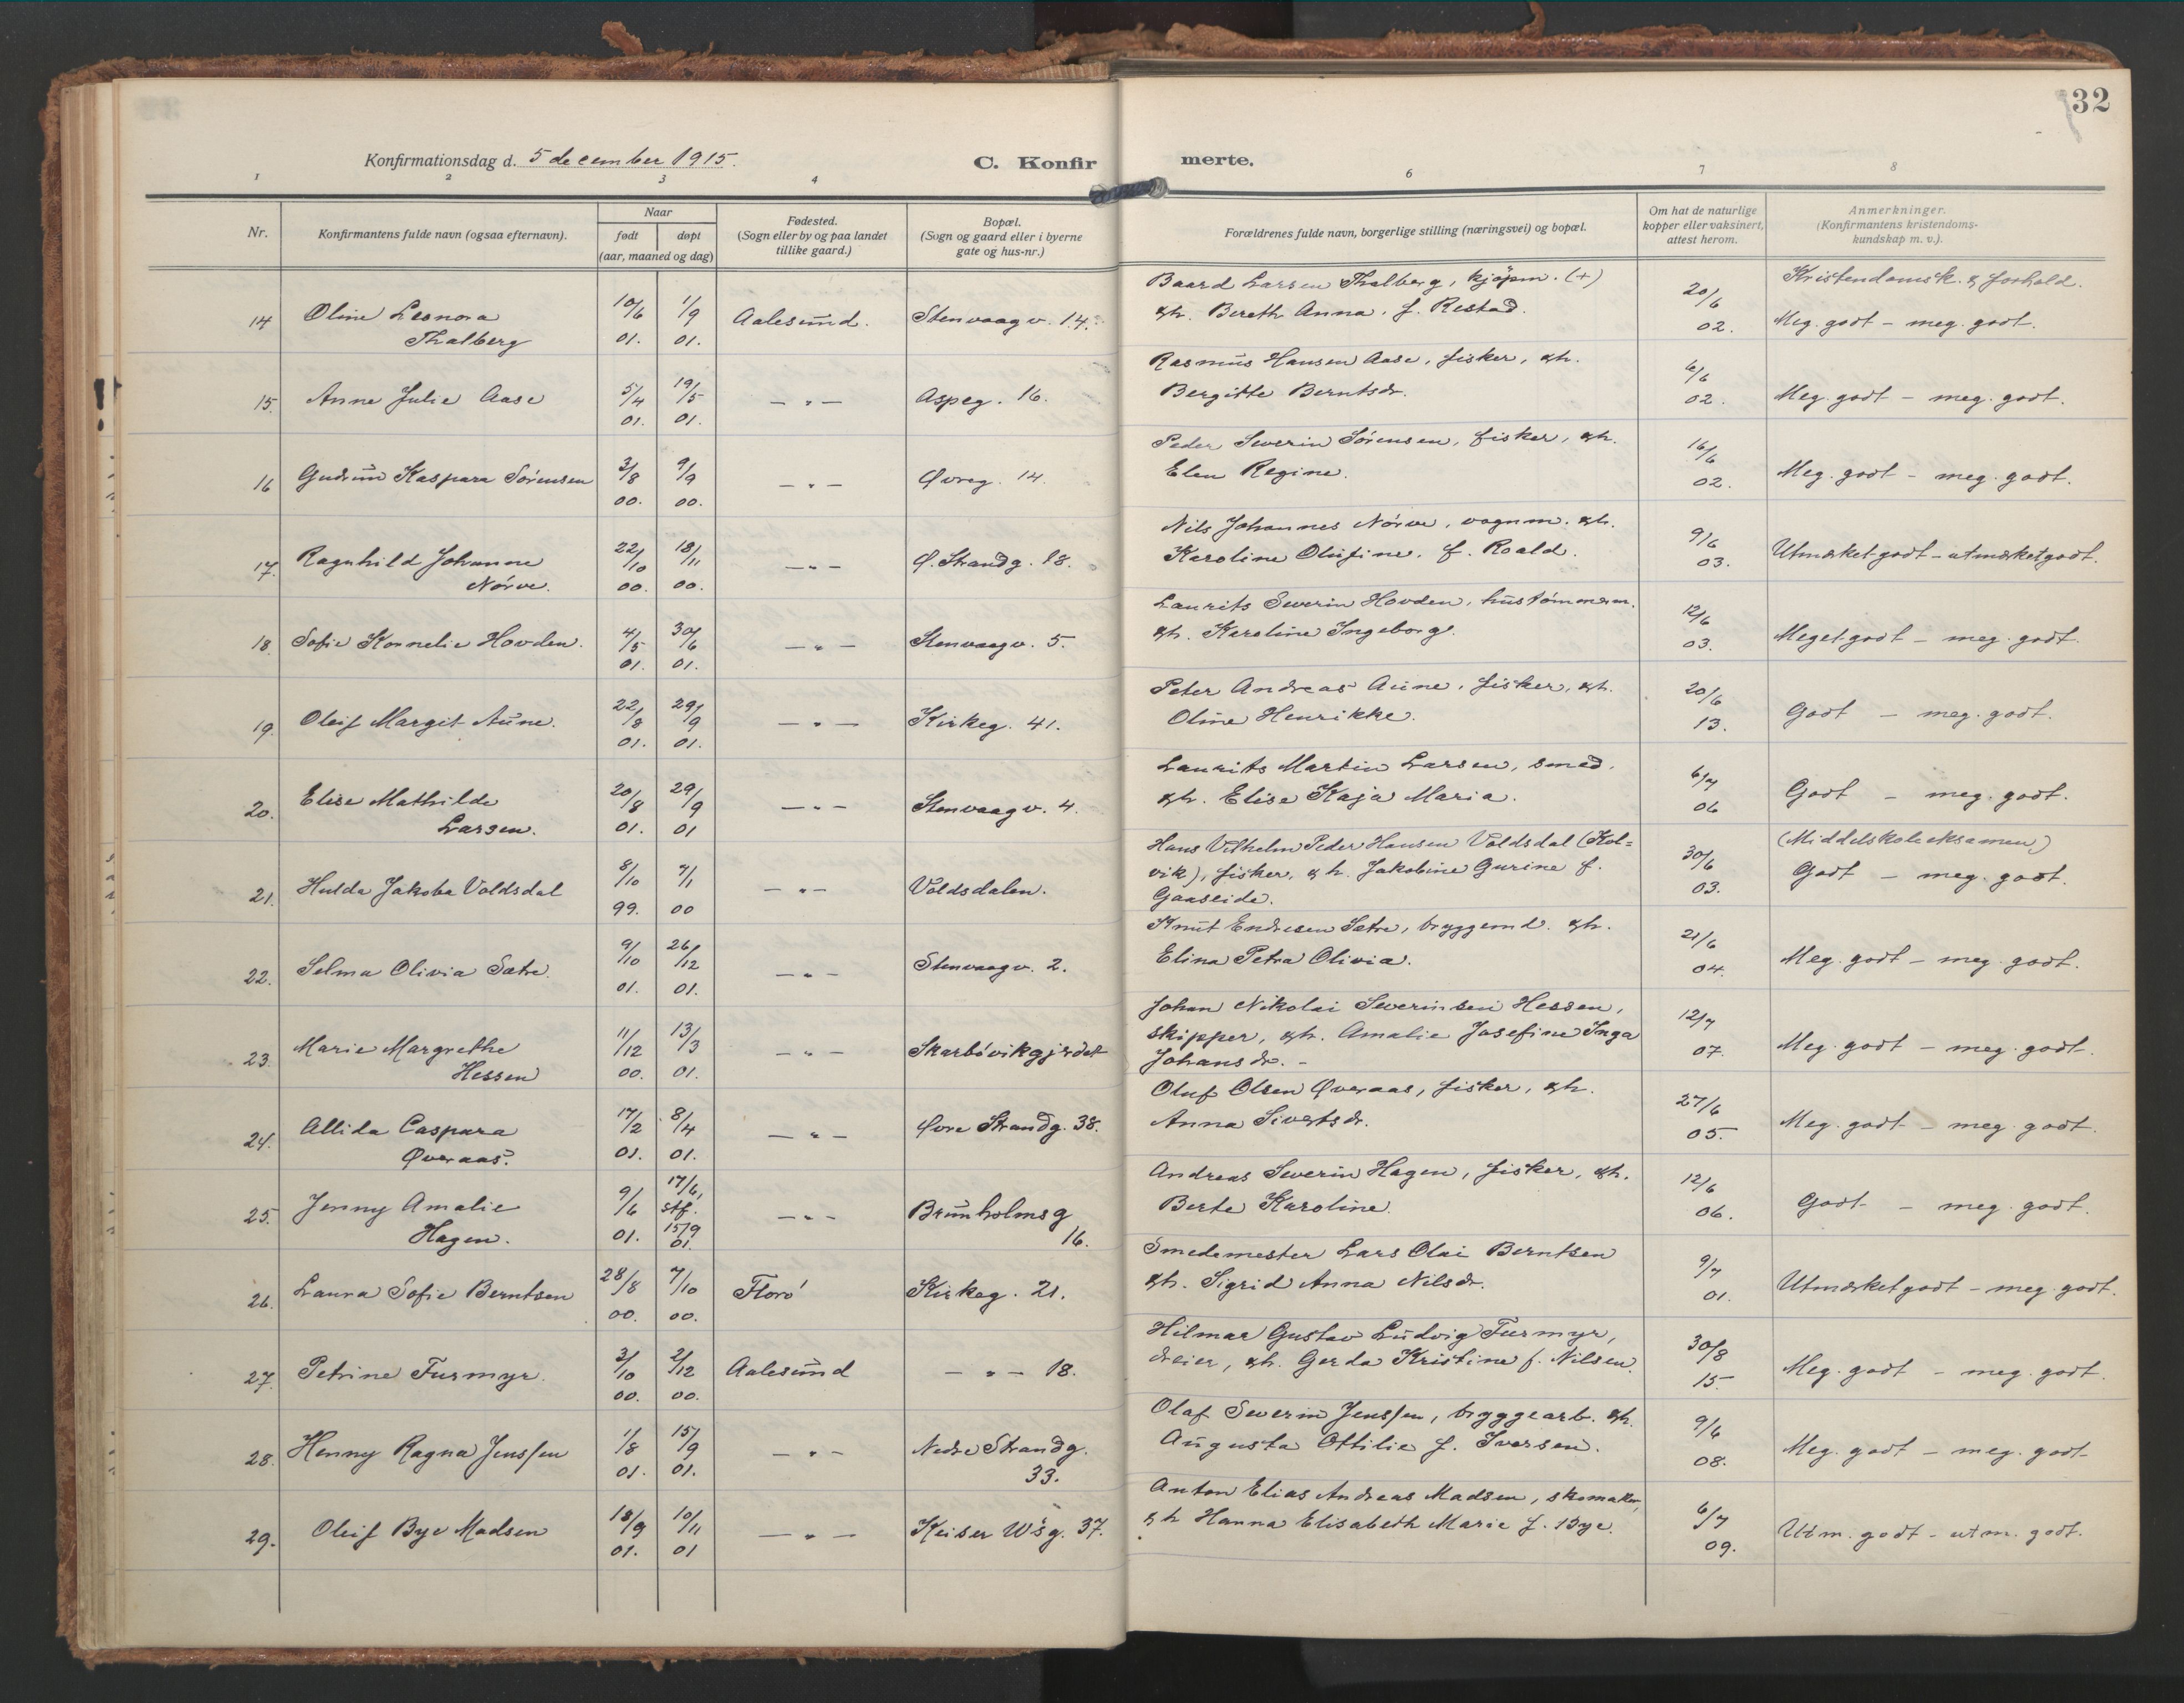 32
Konfirmationsdag d. 5 december 1915.
C. Konfirmerte.
1 2 3 4 6 7 8
Nr.
Konfirmantens fulde navn (ogsaa efternavn).
Naar
født døpt
(aar, maaned og dag)
Fødested.
(Sogn eller by og paa landet
tillike gaard.)
Bopæl.
(Sogn og gaard eller i byerne
gate og hus-nr.)
Forældrenes fulde navn, borgerlige stilling (næringsvei) og bopæl.
Om hat de naturlige
kopper eller vaksinert,
attest herom.
Anmerkninger.
(Konfirmantens kristendoms-
kundskap m. v.).
Kristendomsk. & forhold.
14 Oline Leonora Thalberg 10/6 01. 1/9 01. Aalesund. Stenvaagv. 14. Baard Larsen Thalberg, kjøpm. (+)
& h. Bereth Anna, f. Restad. 20/6 02. Meg. godt - meg. godt.
15. Anne Julie Aase 5/4 01. 19/5 01. — " — Aspeg. 16. Rasmus Hansen Aase, fisker, & h.
Bergitte Berntsdr. 6/6 02. Meg. godt - meg. godt.
16 Gudrun Kaspara Sørensen 3/8 00. 9/9 00. — " — Øvreg. 14. Peder Severin Sørensen, fisker, & h.
Elen Regine. 16/6 02. Meg. godt - meg. godt.
17. Ragnhild Johanne Nørve. 22/10 00. 18/11 00. — " — Ø. Strandg. 18. Nils Johannes Nørve, vognm. & h.
Karoline Olufine, f. Roald. 9/6 03. Utmærket godt - utmærket godt.
18. Sofie Kornelie Hovden. 4/5 01. 30/6 01. — " — Stenvaagv. 5. Laurits Severin Hovden, hustømmerm.
& h. Karoline Ingeborg. 12/6 03. Meget godt - meg. godt.
19. Oleif Margit Aune. 22/8 01. 29/9 01. — " — Kirkeg. 41. Peter Andreas Aune, fisker, & h.
Oline Henrikke. 20/6 13. Godt - meg. godt.
20. Elise Mathilde Larsen. 20/8 01. 29/9 01 — " — Stenvaagv. 4. Laurits Martin Larsen, smed.
& h. Elise Kaja Maria. 6/7 06 Godt - meg. godt.
21. Hulda Jakoba Voldsdal 8/10 99. 7/1 00 — " — Voldsdalen. Hans Vilhelm Peder Hansen Voldsdal (Kol=
vik), fisker, & h. Jakobine Gurine f.
Gaaseide. 30/6 03. (Middelskoleeksamen)
Godt - meg. godt.
22. Selma Olivia Sætre. 9/10 01. 26/12 01. — " — Stenvaagv. 2. Knut Endresen Sætre, bryggemd. & h.
Elina Petra Olivia. 21/6 04. Meg. godt - meg. godt.
23. Marie Margrethe Hessen 11/12 00. 13/3 01. — " — Skarbøvikgjerdet Johan Nikolai Severinsen Hessen,
skipper, & h. Amalie Josefine Inga
Johansdr. - 12/7 07. Meg. godt - meg. godt.
24. Allida Caspara Øveraas. 17/2 01. 8/4 01. — " — Øvre Strandg. 38. Oluf Olsen Øveraas, fisker, & h.
Anna Sivertsdr. 27/6 05. Meg. godt - meg. godt.
25. Jenny Amalie Hagen. 9/6 01. 17/6, stf. 15/9 01. — " — Brunholmsg 16. Andreas Severin Hagen, fisker, & h.
Berte Karoline. 12/6 06. Godt - meg. godt.
26. Laura Sofie Berntsen 28/8 00. 7/10 00. Florø Kirkeg. 21. Smedemester Lars Olai Berntsen
& h. Sigrid Anna Nilsdr. 9/7 01. Utmærket godt - meg. godt.
27. Petrine Furmyr. 3/10 00. 2/12 00. Aalesund — " — 18. Hilmar Gustav Ludvig Furmyr,
dreier, & h. Gerda Kristine f. Nilsen. 30/8 15. Meg. godt - meg. godt.
28. Henny Ragna Jenssen 1/8 01. 15/9 01. — " — Nedre Strandg. 33. Olaf Severin Jenssen, bryggearb. & h.
Augusta Ottilie f. Iversen. 9/6 08. Meg. godt - meg. godt
29. Oleif Bye Madsen 18/9 01. 10/11 01 — " — Keiser W's g. 37. Anton Elias Andreas Madsen, skomaker,
& h Hanna Elisabeth Marie f. Bye. 6/7 09. Utm. godt - utm. godt.